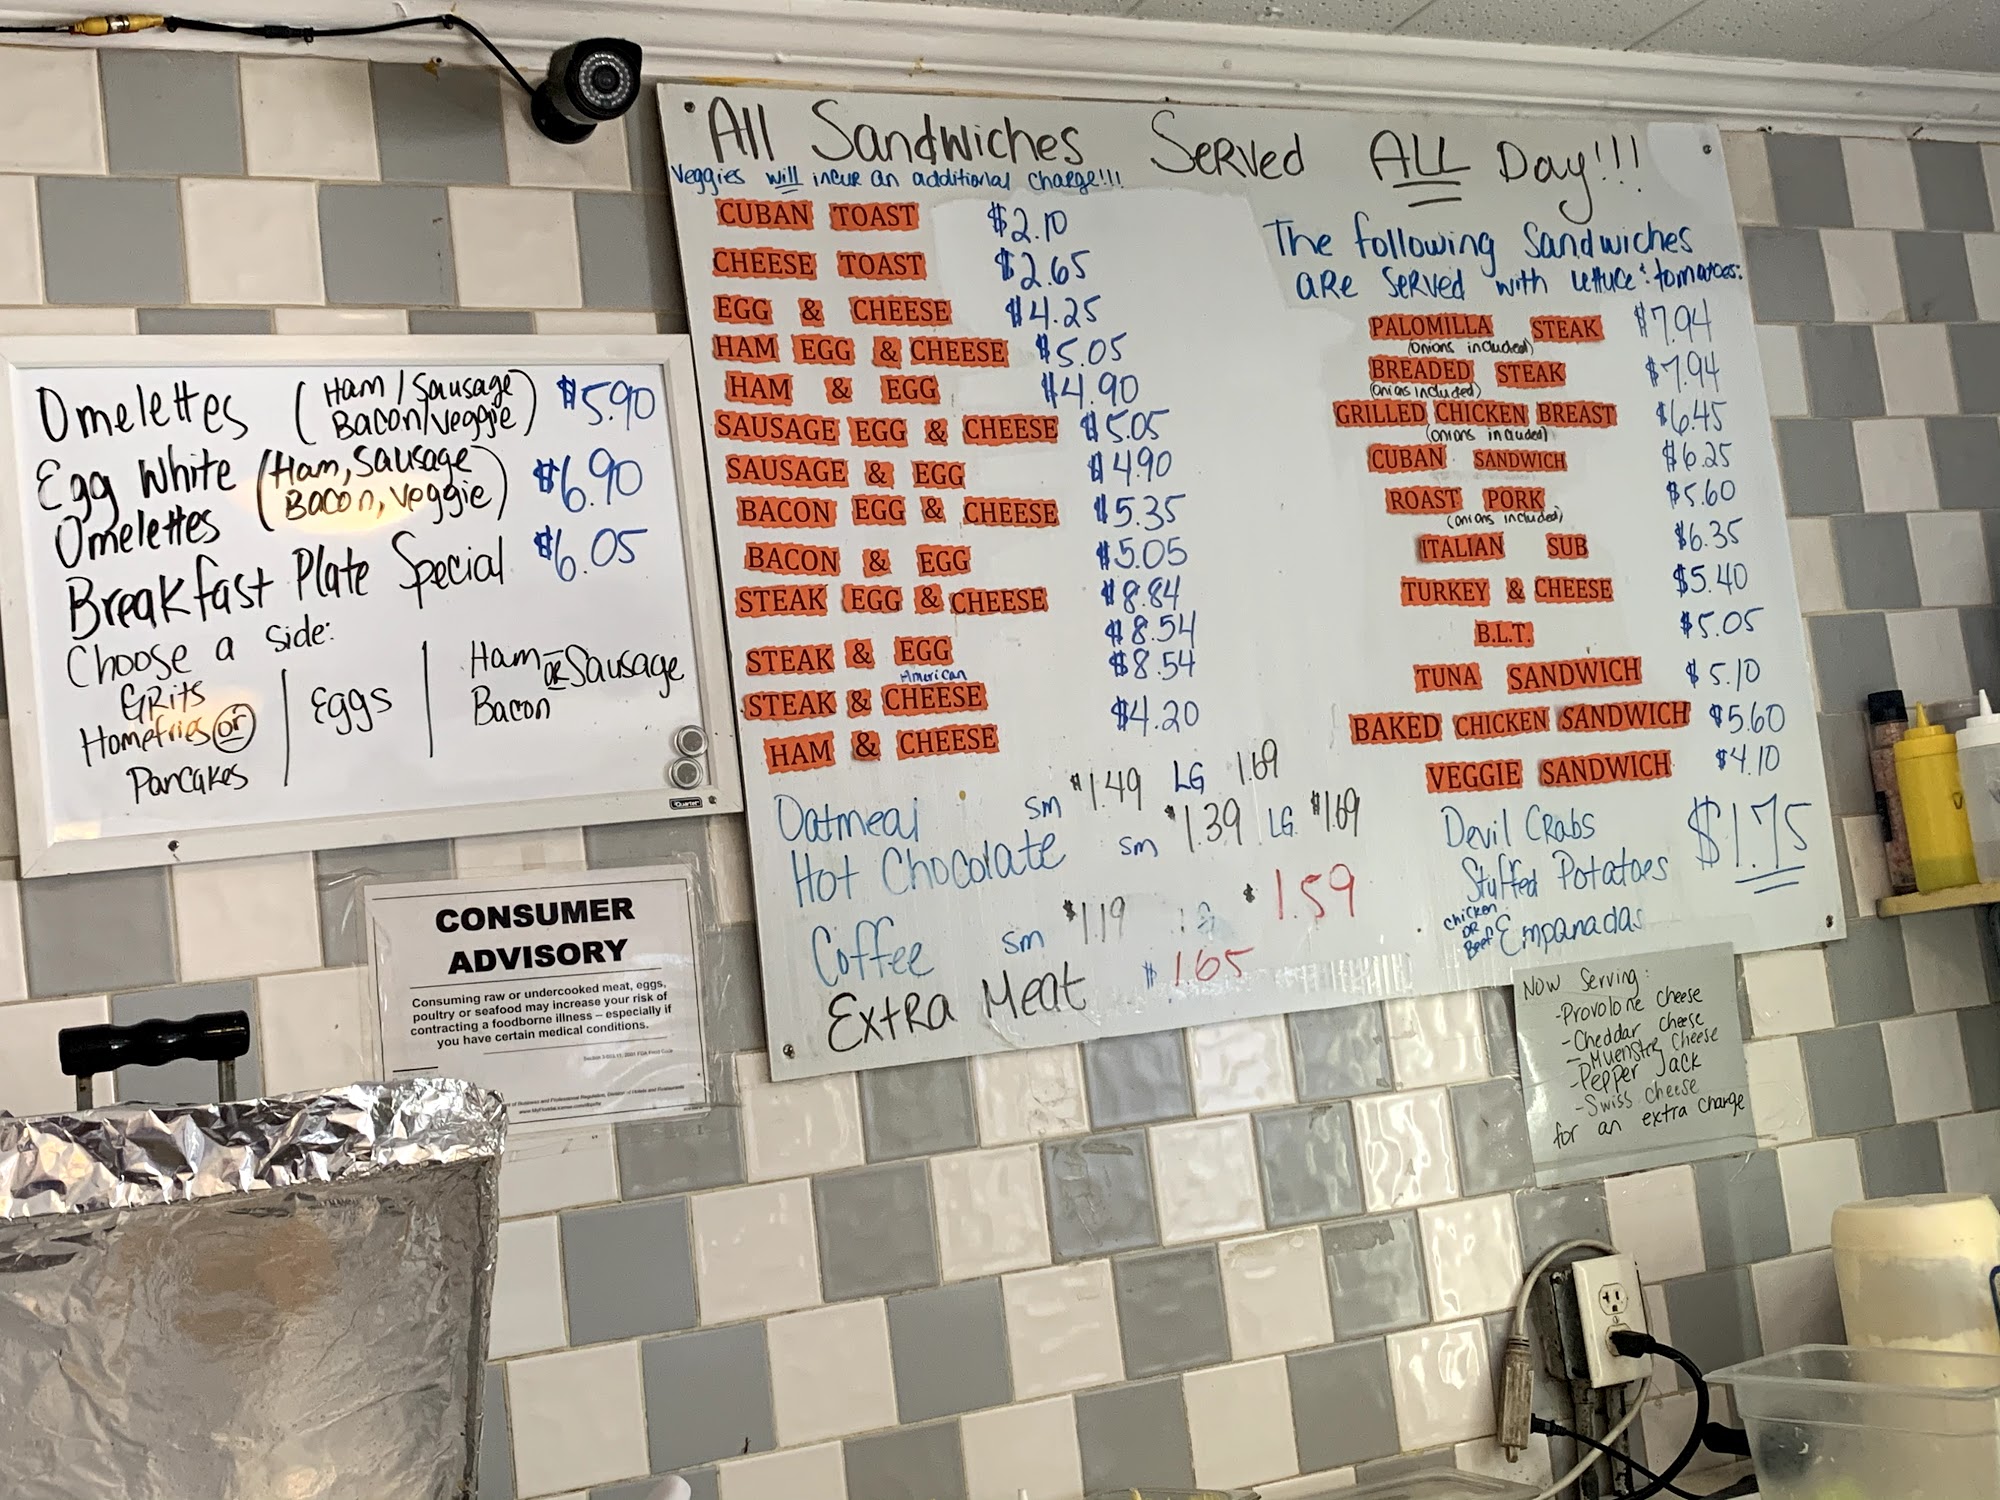 All Sandwiches Served ALL Day!!!
Veggies will incur an additional charge!!!
CUBAN TOAST $2.10
CHEESE TOAST $2.65
EGG & CHEESE $4.25
HAM EGG & CHEESE $5.05
HAM & EGG $4.90
SAUSAGE EGG & CHEESE $5.05
SAUSAGE & EGG $4.90
BACON EGG & CHEESE $5.35
BACON & EGG $5.05
STEAK EGG & CHEESE $8.84
STEAK & EGG $8.54
American
STEAK & CHEESE $8.54
HAM & CHEESE $4.20
Oatmeal sm $1.49 LG 1.69
Hot Chocolate sm $1.39 LG $1.69
Coffee sm $1.19 LG $1.59
Extra Meat $1.65
The following Sandwiches
are served with lettuce & tomatoes:
PALOMILLA STEAK $7.94
(onions included)
BREADED STEAK $7.94
(onions included)
GRILLED CHICKEN BREAST $6.45
(onions included)
CUBAN SANDWICH $6.25
ROAST PORK $5.60
(onions included)
ITALIAN SUB $6.35
TURKEY & CHEESE $5.40
B.L.T. $5.05
TUNA SANDWICH $5.10
BAKED CHICKEN SANDWICH $5.60
VEGGIE SANDWICH $4.10
Devil Crabs
Stuffed Potatoes $1.75
chicken OR Beef Empanadas
Omelettes (Ham/Sausage Bacon/Veggie) $5.90
Egg White Omelettes (Ham, Sausage Bacon, Veggie) $6.90
Breakfast Plate Special $6.05
Choose a side:
Grits | Eggs | Ham or Sausage
Homefries or | Bacon
Pancakes
Quartet
CONSUMER
ADVISORY
Consuming raw or undercooked meat, eggs,
poultry or seafood may increase your risk of
contracting a foodborne illness – especially if
you have certain medical conditions.
of Business and Professional Regulation, Division of Hotels and Restaurants
Now Serving:
-Provolone cheese
-Cheddar cheese
-Muenster cheese
-Pepper Jack
-Swiss cheese
for an extra charge